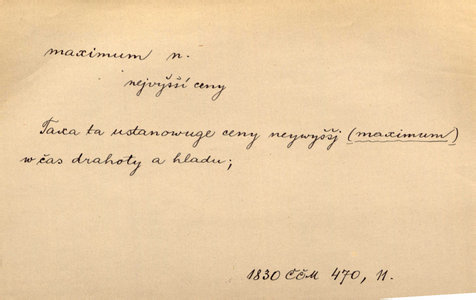 maximum n.
nejvyšší ceny
Taxa ta ustanowuge ceny neywyššj (maximum)
w čas drahoty a hladu;
1830 ČČM 470, N.